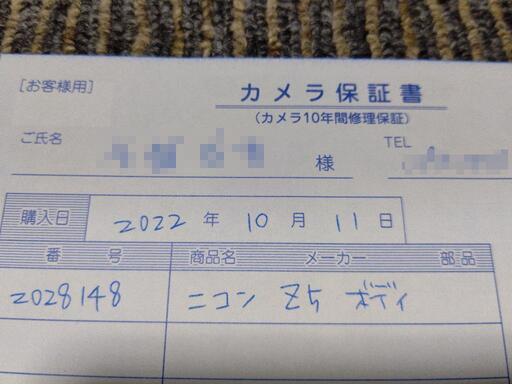 [お客様用]
カメラ保証書
(カメラ10年間修理保証)
ご氏名
様
TEL
購入日 2022 年 10 月 11 日
番号 商品名 メーカー 部品
2028148 ニコン Z5 ボディ